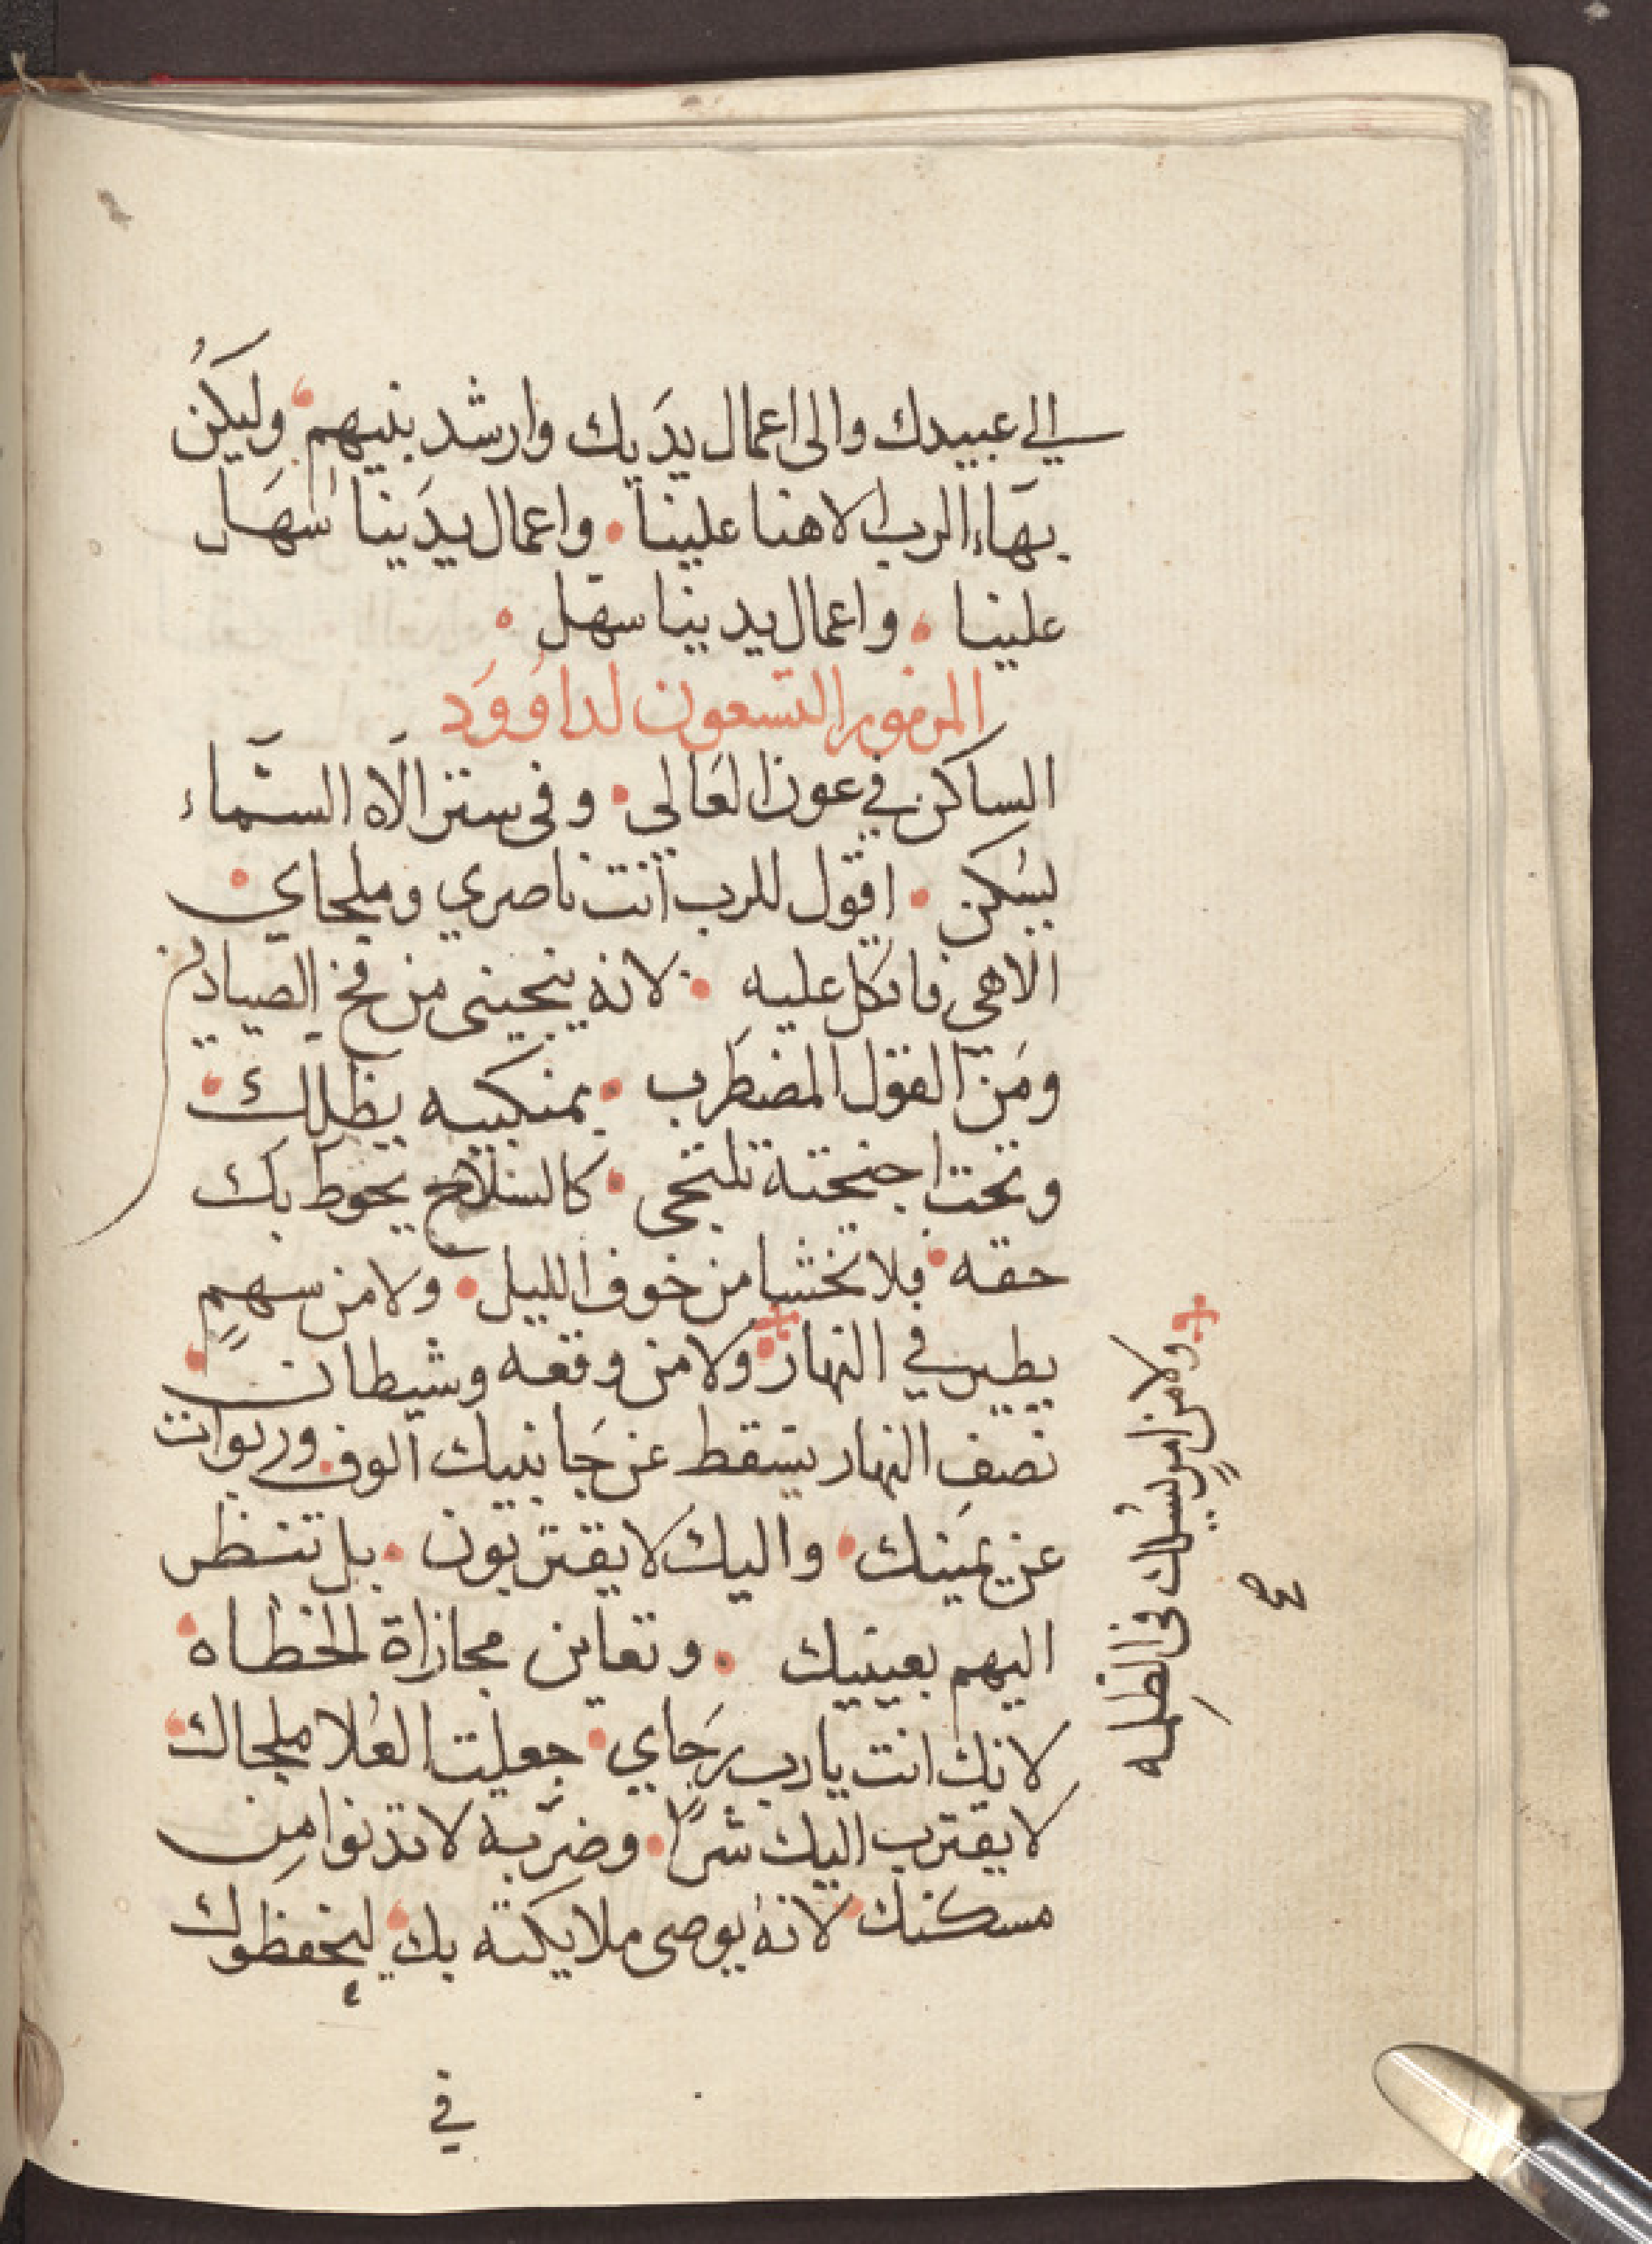 الي عبيدك والى اعمال يدَيك وارشد بنيهم وليكُن
بهَاء الرب الاهنا علينا • واعمال يدَينا سَهَل
علينا • واعمال يدينا سهّل •
المزمور التسعون لداوُوَد
الساكن في عون العَالي • وفى ستر الَاه السَّماء
يسَكن • اقول للرب انت ناصري وملجاي •
الاهى فاتكل عليه • لانه ينجينى من فخ الصياد
ومَن القول المضطرب • بمنكبيه يظلك •
وتحت اجنحته تلتجى • كالسلاح يحوط بك
حقه • فلا تخشا من خوف الليل • ولا من سهمٍ
يطير في النهار + ولا من وقعه وشيطان •
نصف النهار يسَقط عن جَانبيك الوف • وربوات
عن يمَينك • واليك لا يقتربون • بل تنظر
اليهم بعينيك • وتعاين مجازاة الخطاه •
لانك انت يارب رجَاي • جعلت العُلا ملجاك •
لا يقترب اليك شرًا • وضرَبه لا تدنوا من
مسكنك • لانهُ يوصى ملايكته بك • ليحفظوك
في
+ ولا من امرٍ يسُلك فى الظلمه